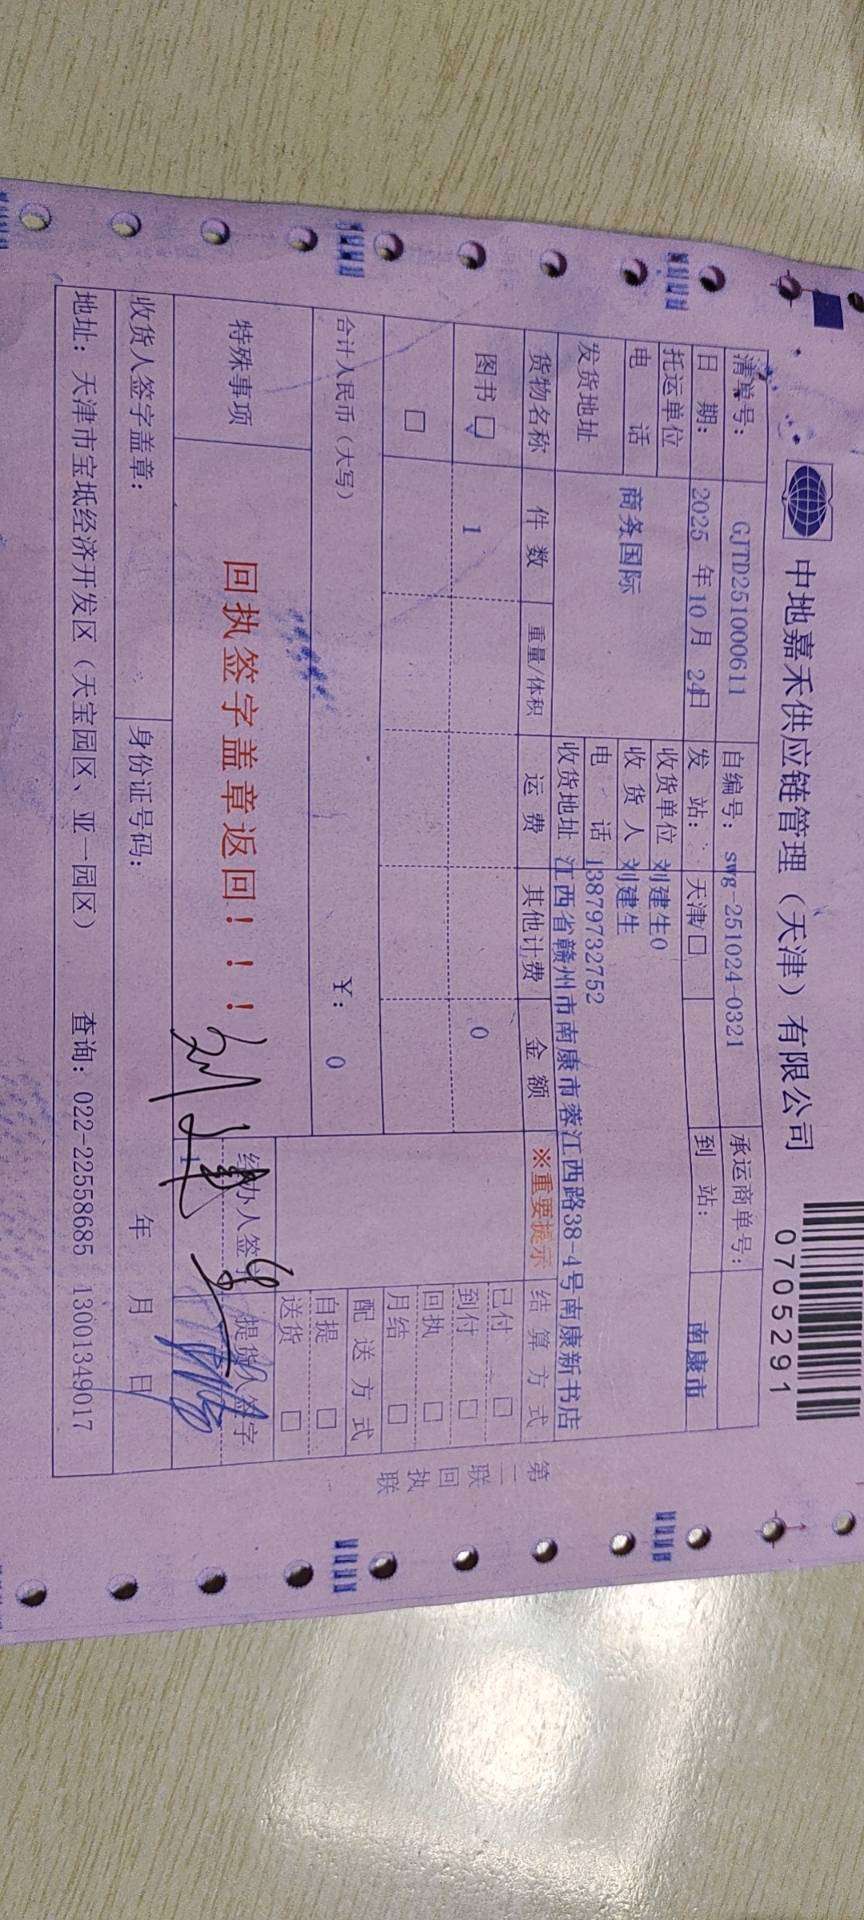 中地嘉禾供应链管理（天津）有限公司
0705291
清单号： GJTD251000611 自编号： swg-251024-0321 承运商单号：
日 期： 2025 年 10 月 24日 发 站： 天津□ 到 站： 南康市
托运单位 收货单位 刘建生0
电 话 商务国际 收 货 人 刘建生
电 话 13879732752
发货地址 收货地址 江西省赣州市南康市蓉江西路38-4号南康新书店
货物名称 件 数 重量/体积 运 费 其他计费 金 额 ※重要提示 结 算 方 式
图书 ☑ 1 0 已付 □
到付 □
□ 回执 □
月结 □
合计人民币（大写） ￥： 0 配 送 方 式
自提 □
送货 □
特殊事项 回执签字盖章返回！！！ 经办人签字 提货人签字
刘建生
收货人签字盖章： 身份证号码： 年 月 日
地址：天津市宝坻经济开发区（天宝园区、亚一园区） 查询：022-22558685 13001349017
第二联 回执联